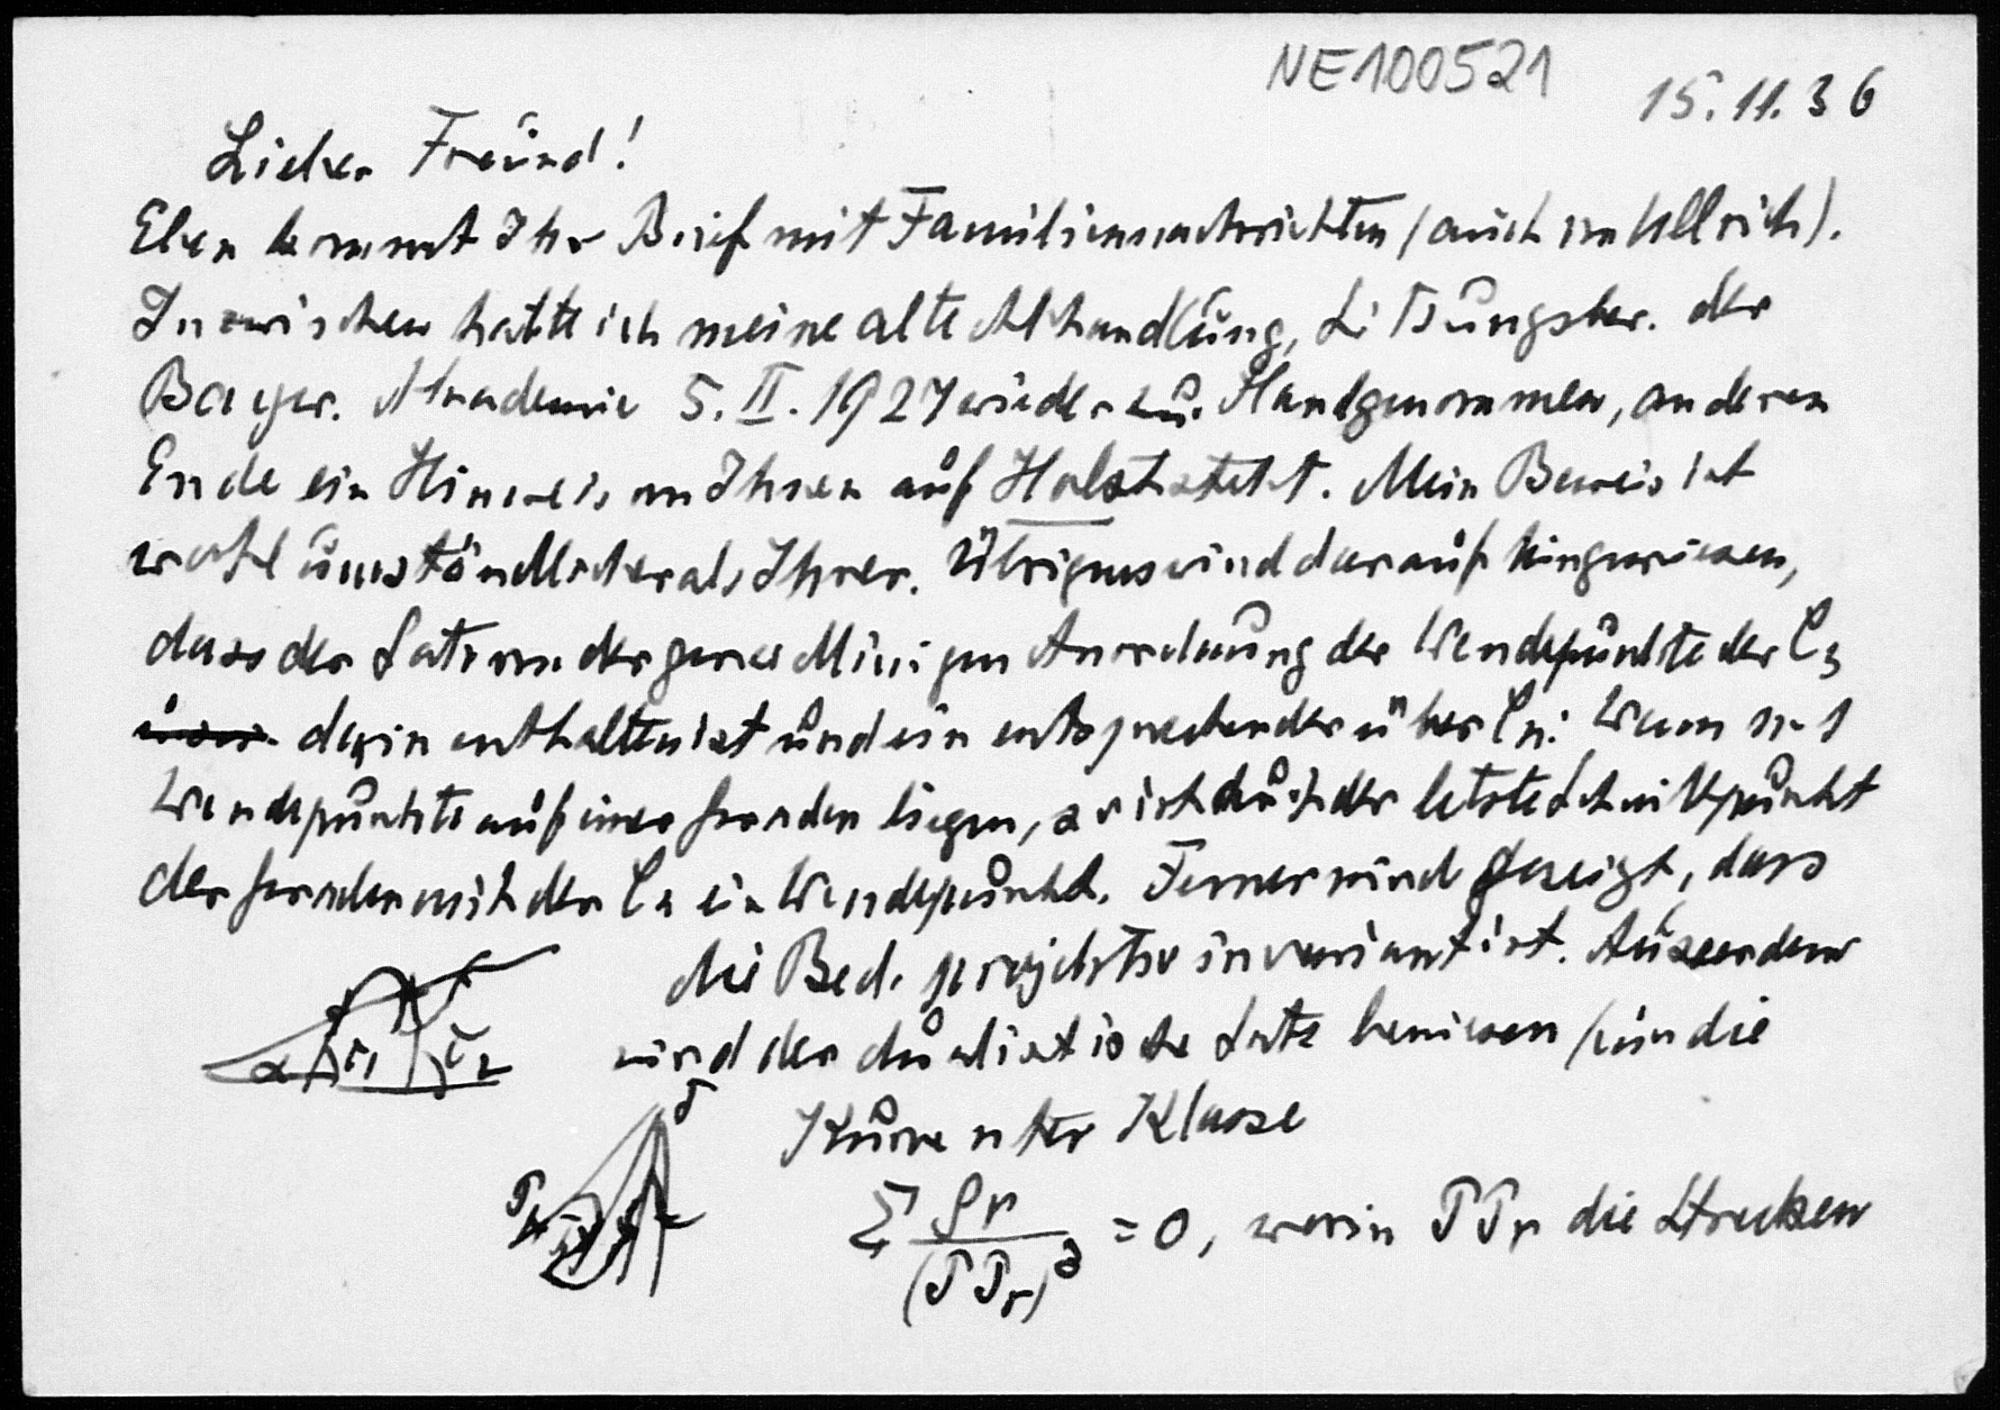 NE100521
15.11.36
Lieber Freund!
Eben kommt Ihr Brief mit Familiennachrichten (auch von Ullrich).
Inzwischen hatte ich meine alte Abhandlung, Sitzungsber. der
Bayer. Akademie 5.II.1927 wieder zur Hand genommen, an deren
Ende ein Hinweis von Ihnen auf Holst steht. Mein Beweis ist
wohl umständlicher als Ihrer. Übrigens wird darauf hingewiesen,
dass der Satz von der geradlinigen Anordnung der Wendepunkte der C3
darin enthalten ist und ein entsprechender über Cn: Wenn n-1
Wendepunkte auf einer Geraden liegen, so ist auch der letzte Schnittpunkt
der Geraden mit der Cn ein Wendepunkt. Ferner wird gezeigt, dass
die Bed. projektiv invariant ist. Ausserdem
wird der dualistische Satz bewiesen für die
Kurve nter Klasse
α τ1 τ2
T
∑ ρν / (TTν)³ = 0, worin TTν die Strecken